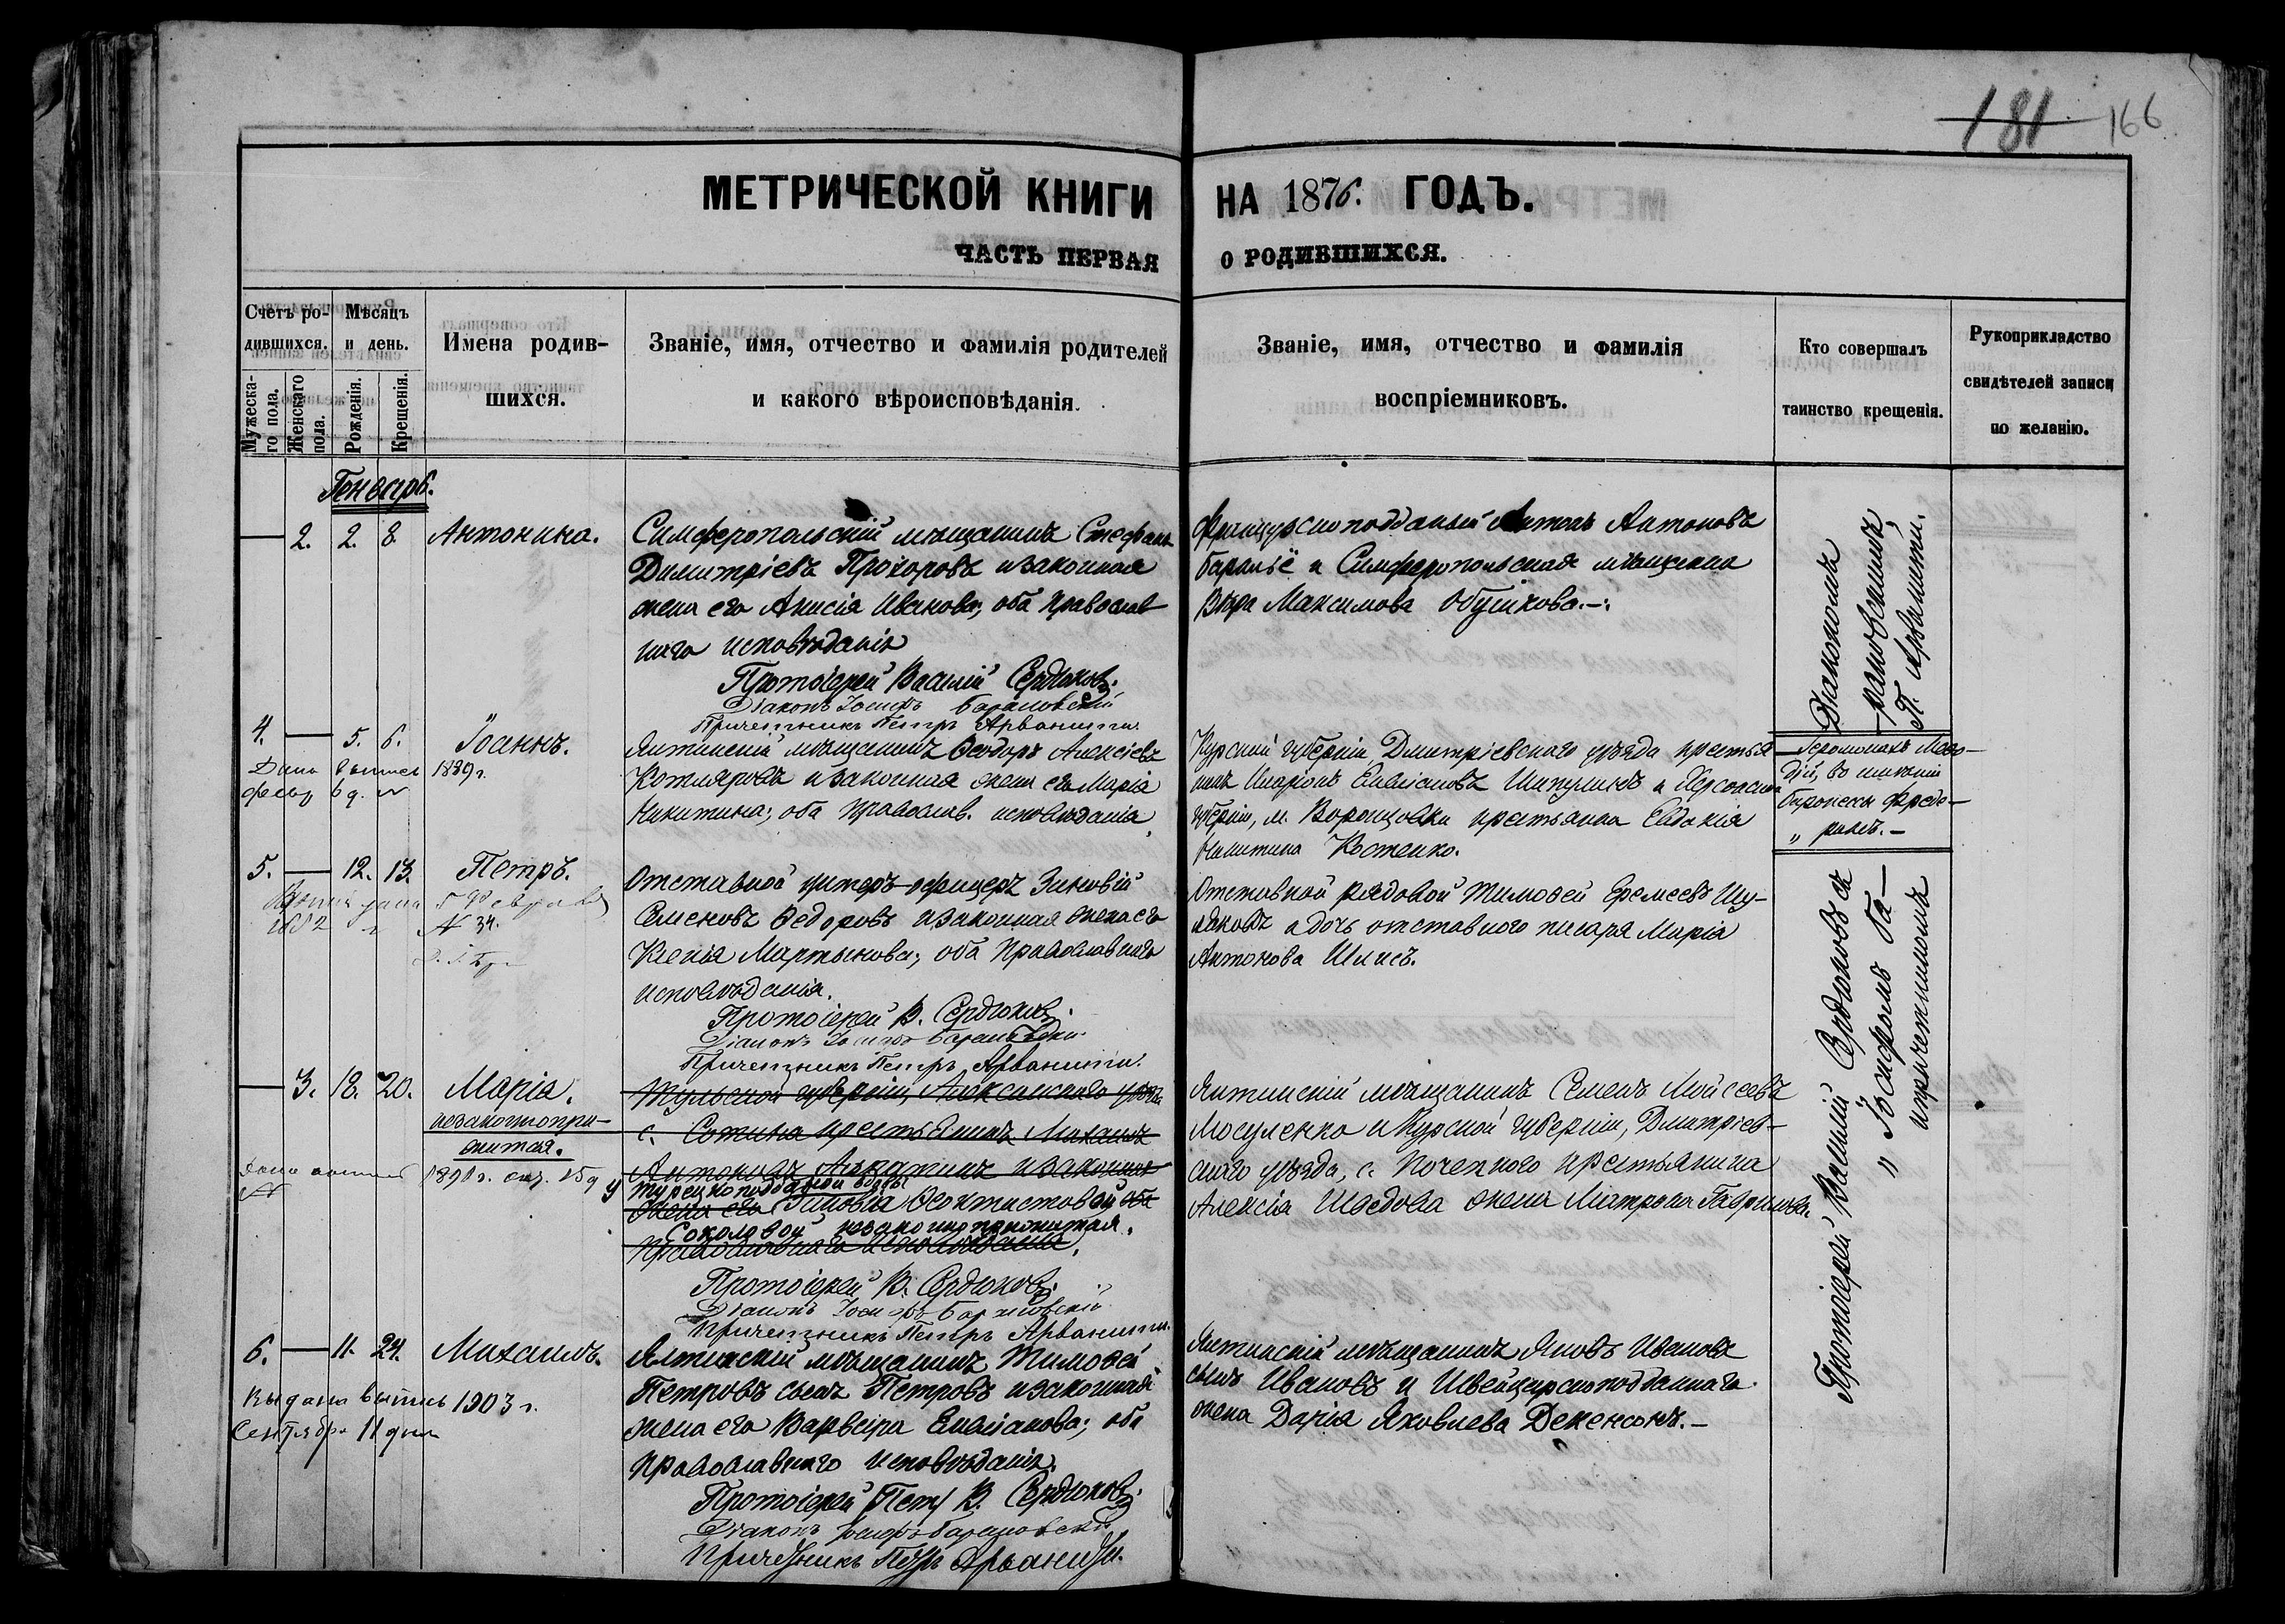 181 166
МЕТРИЧЕСКОЙ КНИГИ НА 1876. ГОДЪ.
ЧАСТЬ ПЕРВАЯ О РОДИВШИХСЯ.
Счетъ ро-
дившихся.
Мужеска-
го пола.
Женскаго
пола.
Мѣсяцъ
и день.
Рожденія.
Крещенія.
Имена родив-
шихся.
Званіе, имя, отчество и фамилія родителей
и какого вѣроисповѣданія.
Званіе, имя, отчество и фамилія
воспріемниковъ.
Кто совершалъ
таинство крещенія.
Рукоприкладство
свидѣтелей записи
по желанію.
Генварь.
2. 2. 8. Антонина.
Симферопольскій мѣщанинъ Стефанъ
Димитріевъ Прохоровъ и законная
жена его Анисія Иванова; оба православ
наго исповѣданія
Протоіерей Василій Сердюковъ.
Діаконъ Іосифъ Барановскій
Причетникъ Петръ Арванити.
Французскоподданый Антонъ Антоновъ
и Симферопольская мѣщанка
Вѣра Максимова
Діакономъ
П. Арванити.
4. 5. 6. Іоаннъ.
Дана выпись 1889 г.
Ялтинскій мѣщанинъ Ѳеодоръ Алексіевъ
Котляровъ и законная жена его Марія
Никитина; оба православ. исповѣданія
Курской губерніи Дмитріевскаго уѣзда крестья
нинъ Иларіонъ Емеліановъ и Херсонской
губерніи, м. Воронцовки крестьянка Евдокія
Никитина Костенко.
Іеромонахъ
въ имѣніи
баронессы Фреде-
" риксъ.-
5. 12. 13. Петръ.
дана 5 Февраля
N 34.
Отставной унтеръ-офицеръ Зиновій
Семеновъ Ѳедоровъ и законная жена его
Ксенія Мартынова; оба православнаго
исповѣданія.
Протоіерей В. Сердюковъ.
Діаконъ Іосифъ Барановскій
Причетникъ Петръ Арванити.
Отставной рядовой Тимоѳей Еремеевъ Шу-
и дочь отставного писаря Марія
Антонова
Протоіерей Василій Сердюковъ съ
" Іосифомъ Ба-
и причетникомъ
3. 18. 20. Марія.
незаконнопри-
житая.
Дана выпись 1890 г. окт. 25 д
Тульской губерніи Алексинскаго уѣзда
с. Сотина крестьянинъ Михаилъ
Антоновъ и законная
у турецкоподданной вдовы
жена его Зиновіа Ѳеоктистовой оба
Соколовой незаконноприжитая.
православнаго исповѣданія.
Протоіерей В. Сердюковъ.
Діаконъ Іосифъ Барановскій
Причетникъ Петръ Арванити.
Ялтинскій мѣщанинъ Семенъ Мойсеевъ
Мосуленко и Курской губерніи, Дмитріев-
скаго уѣзда, с. крестьянина
Алексія Шведова жена Матрона Гаврилова.
6. 11. 24. Михаилъ.
Выдана выпись 1903 г.
Сентября 11 дня
Ялтинскій мѣщанинъ Тимоѳей
Петровъ сынъ Петровъ и законная
жена его Варвара Емеліанова; оба
православнаго исповѣданія.
Протоіерей В. Сердюковъ.
Діаконъ Іосифъ Барановскій
Причетникъ Петръ Арванити.
Ялтинскій мѣщанинъ Яковъ Ивановъ
сынъ Ивановъ и Швейцарскоподданнаго
жена Дарія Яковлева